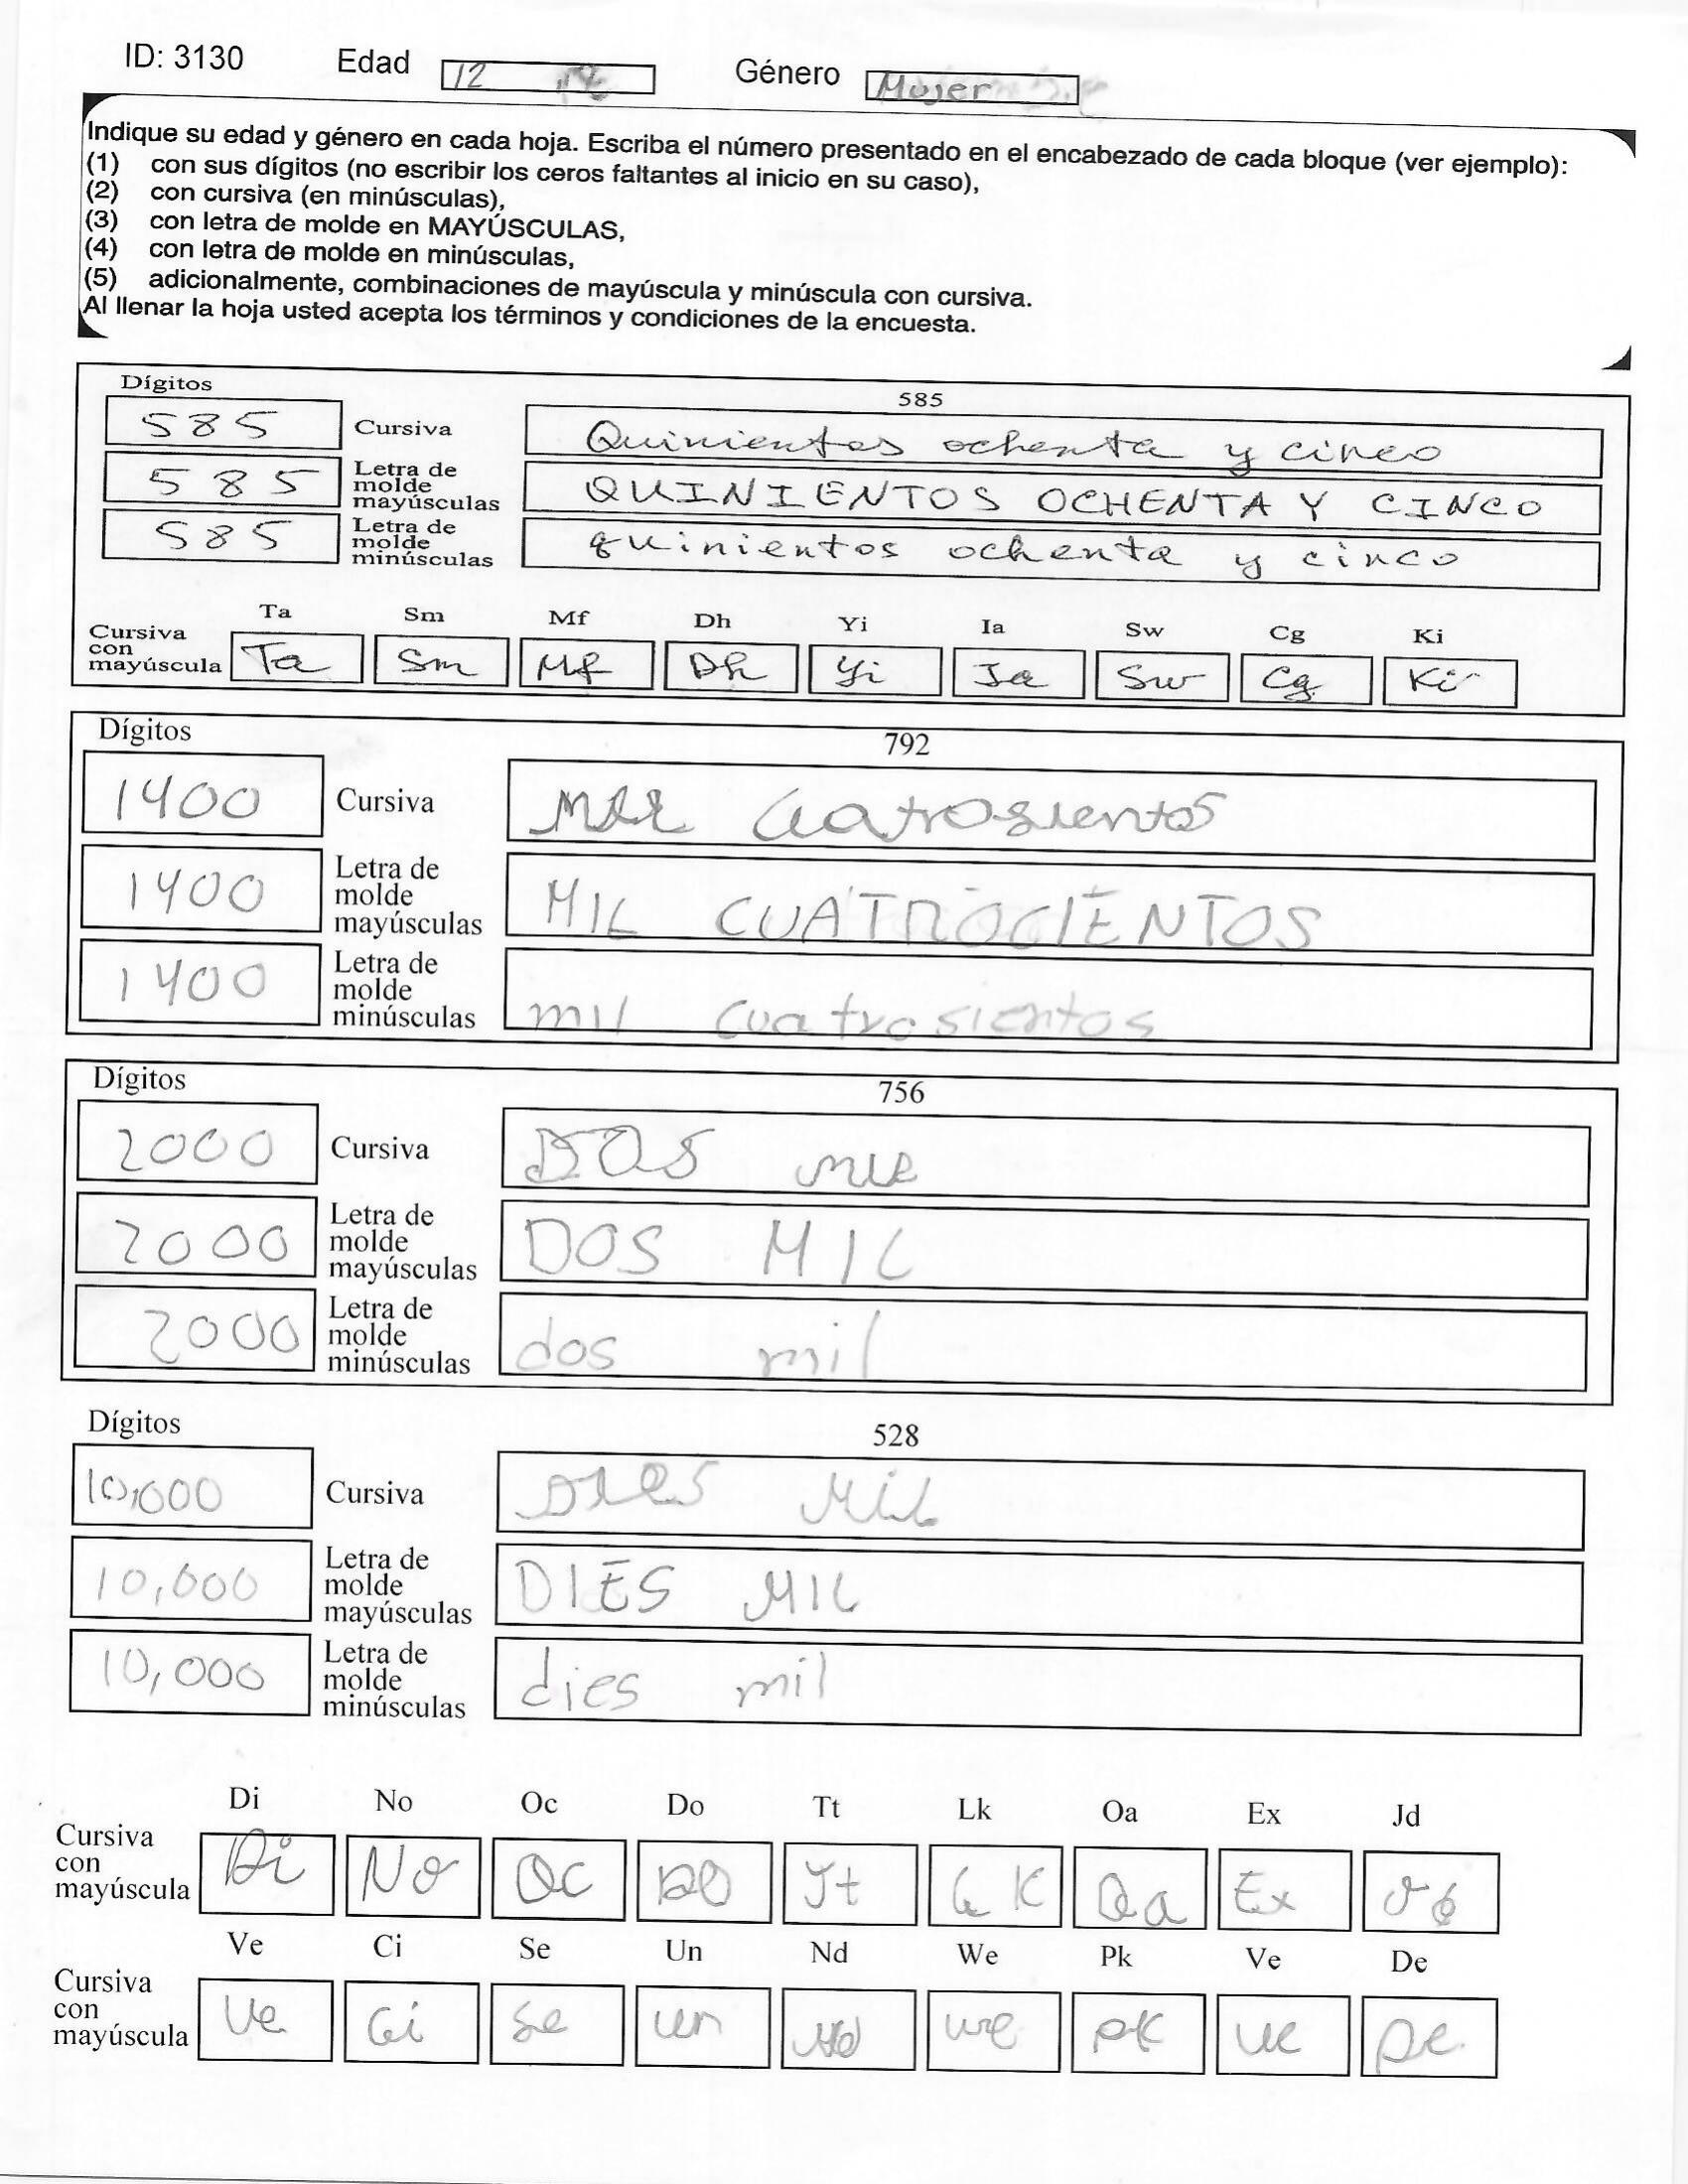 ID: 3130 Edad 12 Género Mujer
Indique su edad y género en cada hoja. Escriba el número presentado en el encabezado de cada bloque (ver ejemplo):
(1) con sus dígitos (no escribir los ceros faltantes al inicio en su caso),
(2) con cursiva (en minúsculas),
(3) con letra de molde en MAYÚSCULAS,
(4) con letra de molde en minúsculas,
(5) adicionalmente, combinaciones de mayúscula y minúscula con cursiva.
Al llenar la hoja usted acepta los términos y condiciones de la encuesta.
Dígitos 585
585 Cursiva Quinientos ochenta y cinco
585 Letra de molde mayúsculas QUINIENTOS OCHENTA Y CINCO
585 Letra de molde minúsculas quinientos ochenta y cinco
Ta Sm Mf Dh Yi Ia Sw Cg Ki
Cursiva con mayúscula Ta Sm Mf Dh Yi Ia Sw Cg Ki
Dígitos 792
1400 Cursiva Mil Cuatrosientos
1400 Letra de molde mayúsculas MIL CUATROCIENTOS
1400 Letra de molde minúsculas mil cuatrosientos
Dígitos 756
2000 Cursiva DOS mil
2000 Letra de molde mayúsculas DOS MIL
2000 Letra de molde minúsculas dos mil
Dígitos 528
10,000 Cursiva Dies Mil
10,000 Letra de molde mayúsculas DIES MIL
10,000 Letra de molde minúsculas dies mil
Di No Oc Do Tt Lk Oa Ex Jd
Cursiva con mayúscula Di No Oc Do Tt Lk Oa Ex Jd
Ve Ci Se Un Nd We Pk Ve De
Cursiva con mayúscula Ve Ci Se Un Nd We Pk Ve De